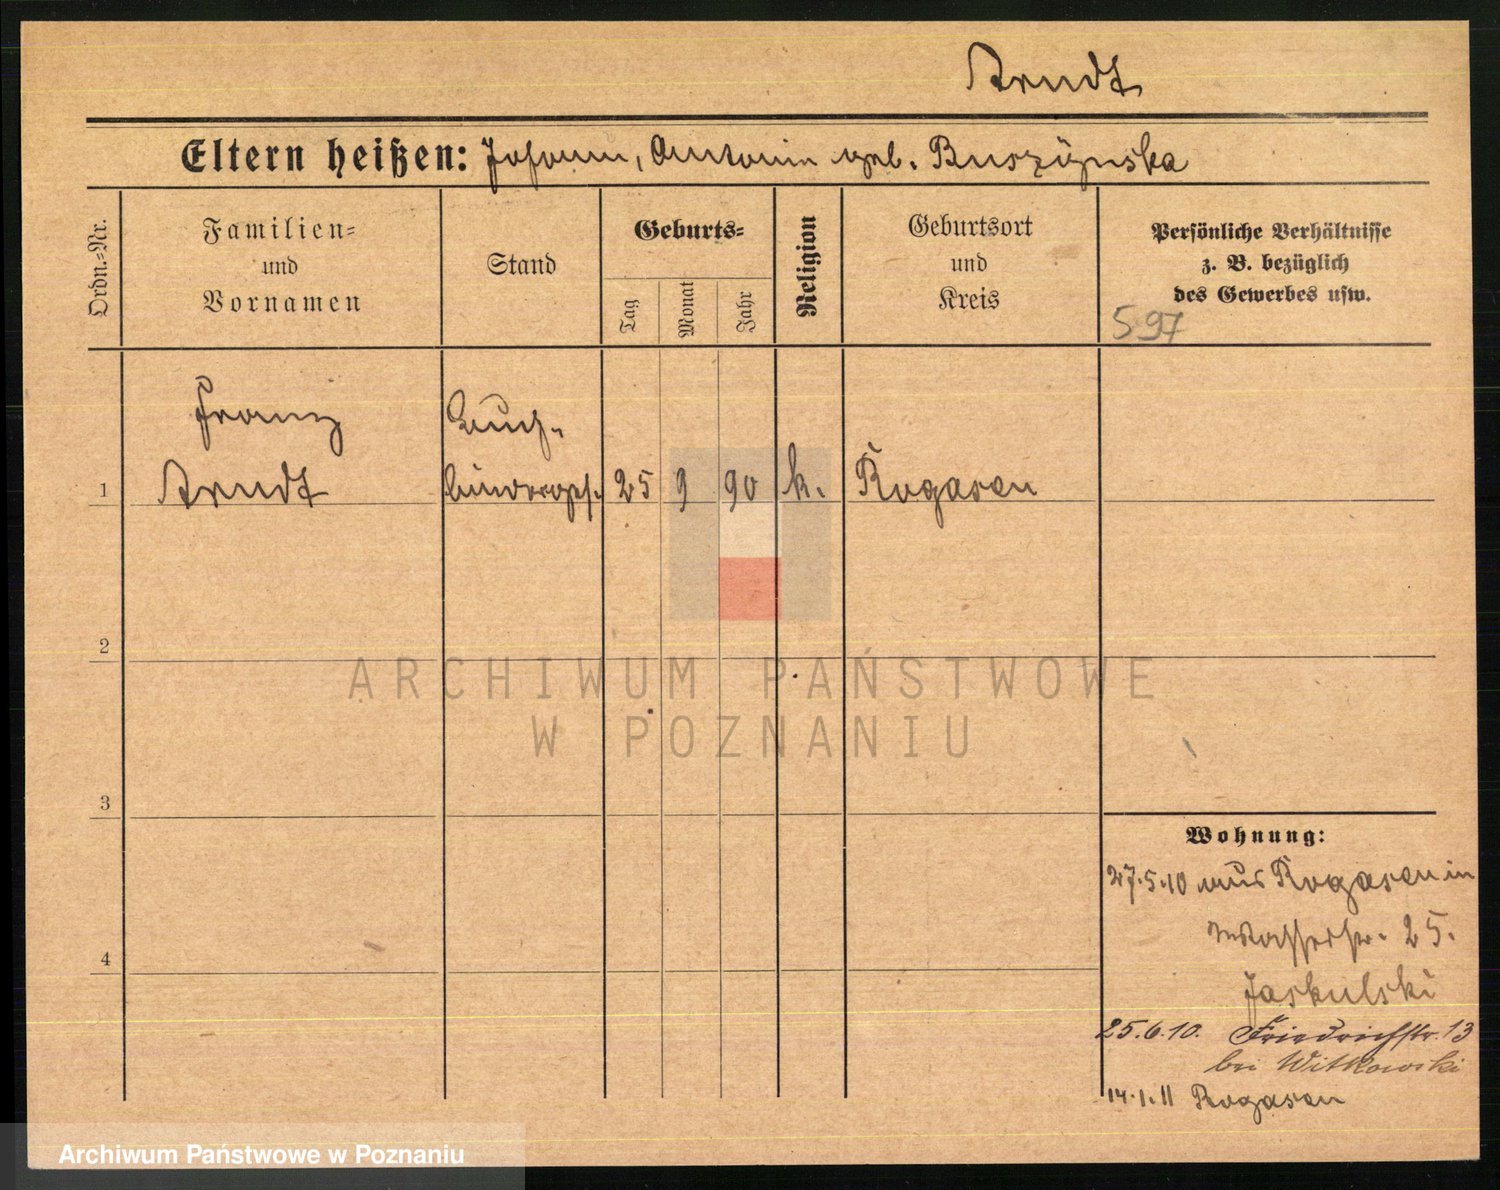 Arndt
Eltern heißen: Johann, Antonie geb. Buszÿnska
Ordn.-Nr.
Familien- und Vornamen
Stand
Geburts-
Tag
Monat
Jahr
Religion
Geburtsort und Kreis
Persönliche Verhältnisse
z. B. bezüglich
des Gewerbes usw.
597
Franz Buch-
1 Arndt bindergeh. 25 9 90 k. Rogasen
2
3
4
Wohnung:
27.5.10 aus Rogasen in
Wasserstr. 25.
Jaskulski
25.6.10. Friedrichstr. 13
bei Witkowski
14.1.11 Rogasen
ARCHIWUM PAŃSTWOWE
W POZNANIU
Archiwum Państwowe w Poznaniu